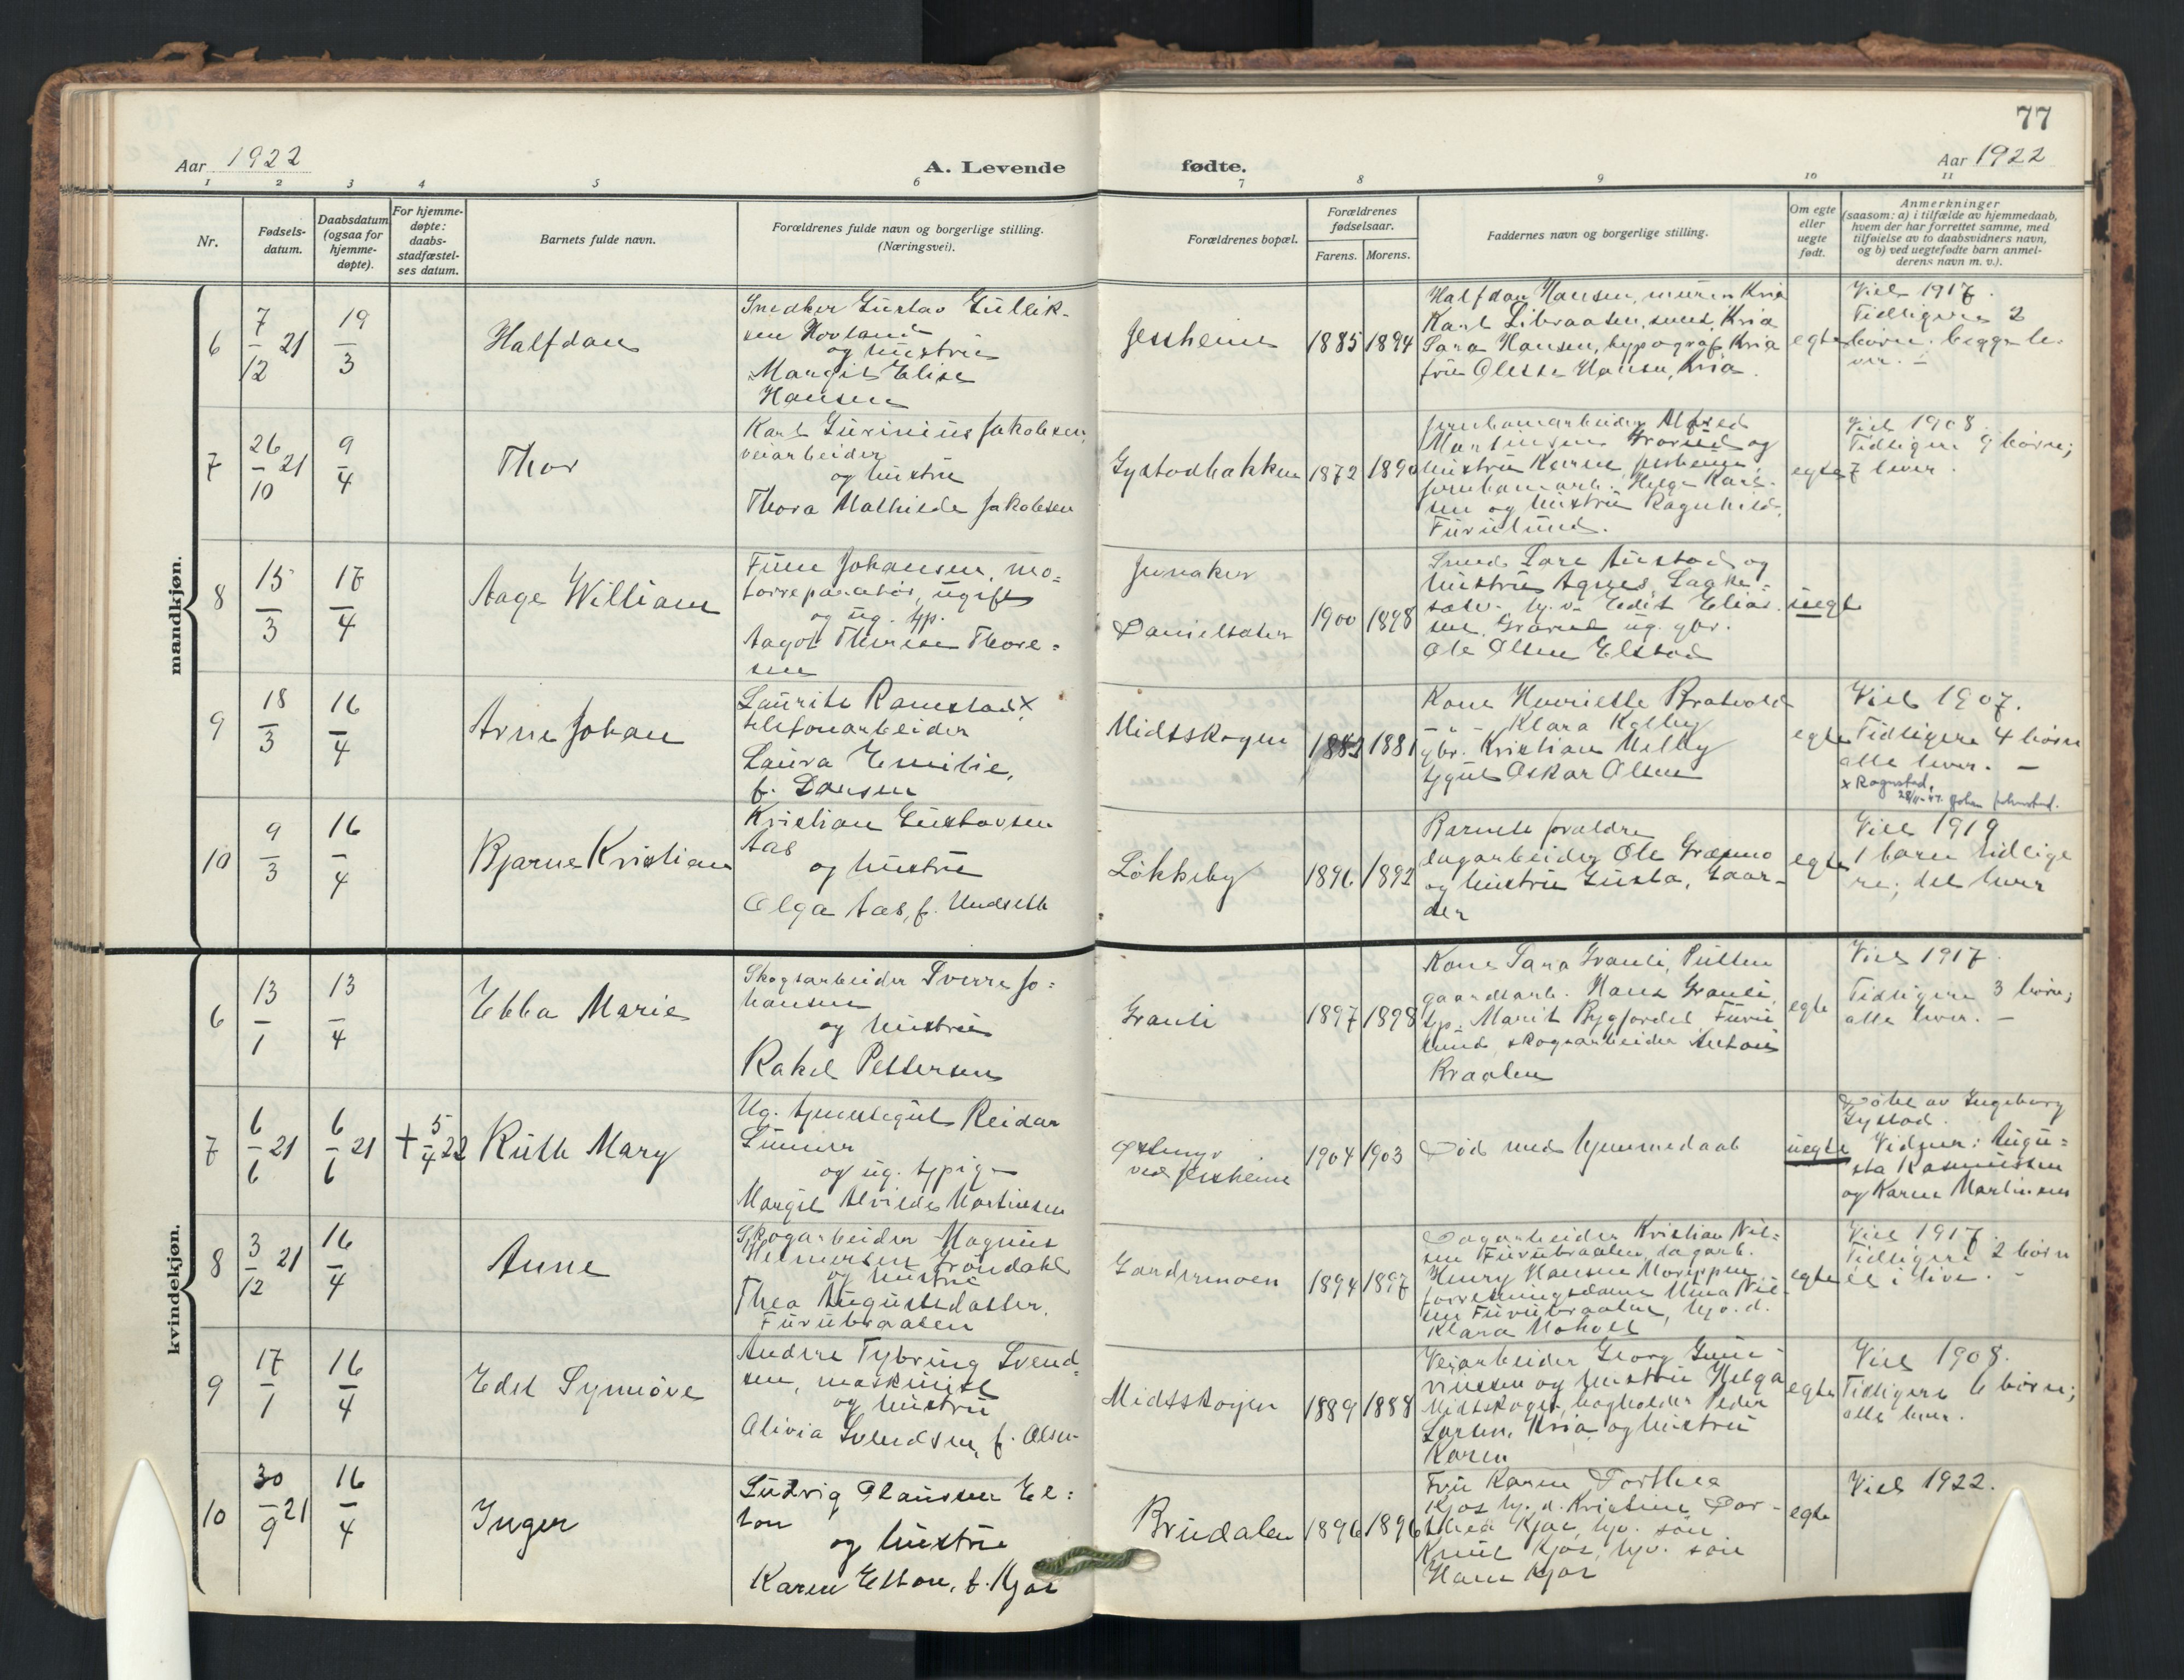 77
Aar 1922
A. Levende
fødte.
Aar 1922
1 2 3 4 5 6 7 8 9 10 11
Nr.
Fødsels-
datum.
Daabsdatum
(ogsaa for
hjemme-
døpte).
For hjemme-
døpte:
daabs-
stadfæstel-
ses datum.
Barnets fulde navn.
Forældrenes fulde navn og borgerlige stilling.
(Næringsvei).
Forældrenes bopæl.
Forældrenes
fødselsaar.
Farens. Morens.
Faddernes navn og borgerlige stilling.
Om egte
eller
uegte
født.
Anmerkninger
(saasom: a) i tilfælde av hjemmedaab,
hvem der har forrettet samme, med
tilføielse av to daabsvidners navn,
og b) ved uegtefødte barn anmel-
derens navn m. v.).
mandkjøn.
6
7/12 21
19/3
Halfdan
Snedker Gustav Gullik-
sen Hovland
og hustru
Margit Elise
Hansen
Jessheim
1885 1894
Halfdan Hansen, murer Kria
Karl Libraaten, smed, Kria
Sara Hansen, typograf Kria
fru Olette Hansen, Kria.
egte
Viet 1917.
Tidligere 2
børn. begge le-
ver. –
7
26/10 21
9/4
Thor
Karl Gurinius Jakobsen,
veiarbeider
og hustru
Thora Mathilde Jakobsen
Gystadbakken
1872 1890
jernbanearbeider Alfred
Martinsen Grorud og
hustru Karen, Jessheim,
jernbanearb. Helge Karl-
sen og hustru Ragnhild,
Furulund.
egte
Viet 1908
Tidligere 9 børn;
7 lever.
8
15/3
17/4
Aage William
Finn Johansen, mo=
torreparatør, ugift
og ug. tjp.
Aagot Therese Thore=
sen
Jernaker
Danielsæter
1900 1898
Smed Lars Austad og
hustru Agnes,
Ole Olsen Elstad
uegte
9
18/3
16/4
Arne Johan
Laurits Ramstad x
telefonarbeider
Laura Emilie,
f. Larsen
Midtskogen
1882 1881
Kone Henriette Bratvold
– " – Klara Kolby
gbr. Kristian Melby
tjgut Oskar Olsen
egte
Viet 1907.
Tidligere 4 børn
alle lever. –
x Rognstad,
10
9/3
16/4
Bjarne Kristian
Kristian Gustavsen
Aas
og hustru
Olga Aas, f. Undseth
Løkkeby
1896 1892
Barnets forældre
dagarbeider Ole Græsmo
og hustru Gusta, Gaar-
der
egte
Viet 1919
1 barn tidlige
re; det lever
kvindekjøn.
6
13/1
13/4
Ebba Marie
Skogsarbeider Sverre Jo=
hansen
og hustru
Rakel Pettersen
Granli
1897 1898
Kone Sara Granli, Putten
gaardsarb. Hans Granli,
tjp. Marit Bygfordet Furu
lund, skogsarbeider Anton
Braaten
egte
Viet 1917.
Tidligere 3 børn;
alle lever. –
7
6/6 21
6/6 21
+ 5/4 22
Ruth Mary
Ug. tjenestegut Reidar
Sunner
og ug. tjpige
Margit Alvilde Martinsen
Østmyr
ved Jessheim
1904 1903
Død med hjemmedaab
uegte
Døbt av Ingeborg
Gystad.
Vidner: Augu=
sta Rasmussen
og Karen Martinsen
8
3/12 21
16/4
Anne
Skogarbeider Magnus
Helmersen Grøndahl
og hustru
Thea Augustsdatter,
Furubraaten
Gardermoen
1894 1897
Dagarbeider Kristian Niel=
sen Furubraaten, dagarb.
Henry Hansen Moreppen
forretningsdame Unna Niel-
sen Furubraaten, hjv. d.
Klara Moholt
egte
Viet 1917.
Tidligere 2 børn
ei i live. –
9
17/1
16/4
Edel Synnöve
Andre Tybring Svend=
sen, maskinist
og hustru
Olivia Svendsen, f. Olsen
Midtskogen
1889 1888
Veiarbeider Georg Guni-
vinssen og hustru Helga
Midtskogen, bagholder Peder
Larsen, Kria og hustru
Karen
egte
Viet 1908.
Tidligere 6 børn;
alle lever.
10
30/9 21
16/4
Inger
Ludvig Clausen El=
ton
og hustru
Karen Elton, f. Kjos
Brudalen
1896 1896
Fru Karen Dorthea
Kjos hj. d. Kristine Dor-
thea Kjos, hjv. søn
Knut Kjos, hjv. søn
Hans Kjos
egte
Viet 1922.